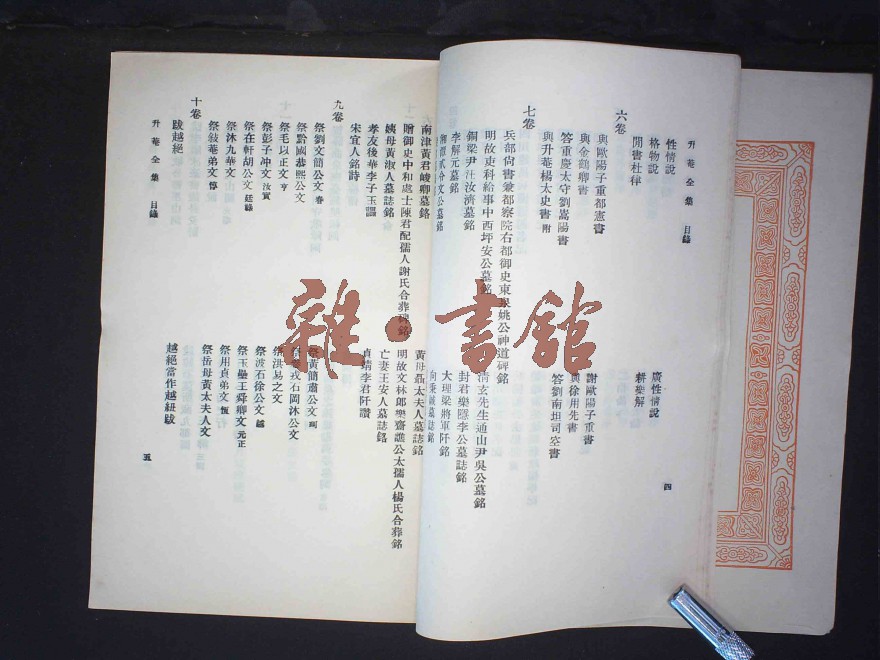 升菴全集 目錄
四
性情說
廣性情說
格物說
耕樂解
閒書杜律
六卷
與歐陽子重都憲書
謝歐陽子重書
與金鶴卿書
與徐用先書
答重慶太守劉嵩陽書
答劉南坦司空書
與升菴楊太史書 附
七卷
兵部尙書兼都察院右都御史東泉姚公神道碑銘
明故吏科給事中西坪安公墓銘
清玄先生通山尹吳公墓銘
銅梁尹汪汝濟墓銘
封君樂隱李公墓誌銘
李解元墓銘
大理梁將軍阡銘
南津黃君峻卿墓銘
黃母聶太夫人墓誌銘
贈御史中和處士陳君配孺人謝氏合葬碑銘
明故文林郎樂齋譙公太孺人楊氏合葬銘
姨母黃淑人墓誌銘
亡妻王安人墓誌銘
孝友後華李子玉謌
貞靖李君阡讚
宋宜人銘詩
九卷
祭劉文簡公文 春
祭黃簡肅公文 珂
祭黔國恭熙公文
戎石岡沐公文
祭毛以正文 亨
祭洪易之文
祭彭子冲文 汝實
祭波石徐公文 樾
祭在軒胡公文 廷祿
祭玉壘王舜卿文 元正
祭沐九華文
祭用貞弟文 恆
祭敍菴弟文 惇
祭岳母黃太夫人文
十卷
跋越絕
越絕當作越紐跋
升菴全集 目錄
五
雜·書館